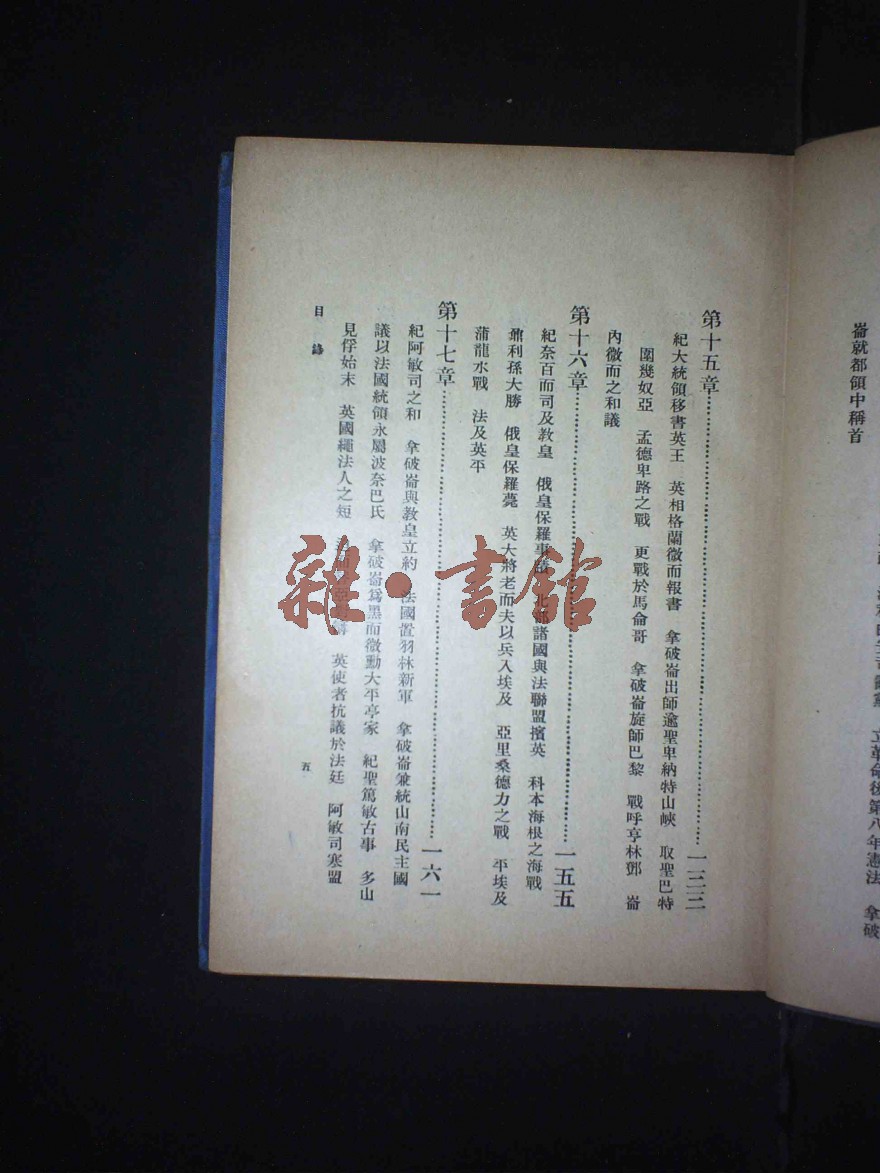 崙就都領中稱首
立革命後第八年憲法　拿破
第十五章…………一三三
紀大統領移書英王　英相格蘭微而報書　拿破崙出師逾聖卑納特山峽　取聖巴特
圍幾奴亞　孟德卑路之戰　更戰於馬侖哥　拿破崙旋師巴黎　戰呼亨林鄧　崙
內微而之和議
第十六章…………一五五
紀奈百而司及教皇　俄皇保羅事　北部諸國與法聯盟擯英　科本海根之海戰
鼐利孫大勝　俄皇保羅薨　英大將老而夫以兵入埃及　亞里桑德力之戰　平埃及
蒲龍水戰　法及英平
第十七章…………一六一
紀阿敏司之和　拿破崙與教皇立約　法國置羽林新軍　拿破崙兼統山南民主國
議以法國統領永屬波奈巴氏　拿破崙爲黑而微勳大平亭家　紀聖篤敏古事　多山
見俘始末　英國繩法人之短　英使者抗議於法廷　阿敏司寒盟
目錄
五
雜·書館